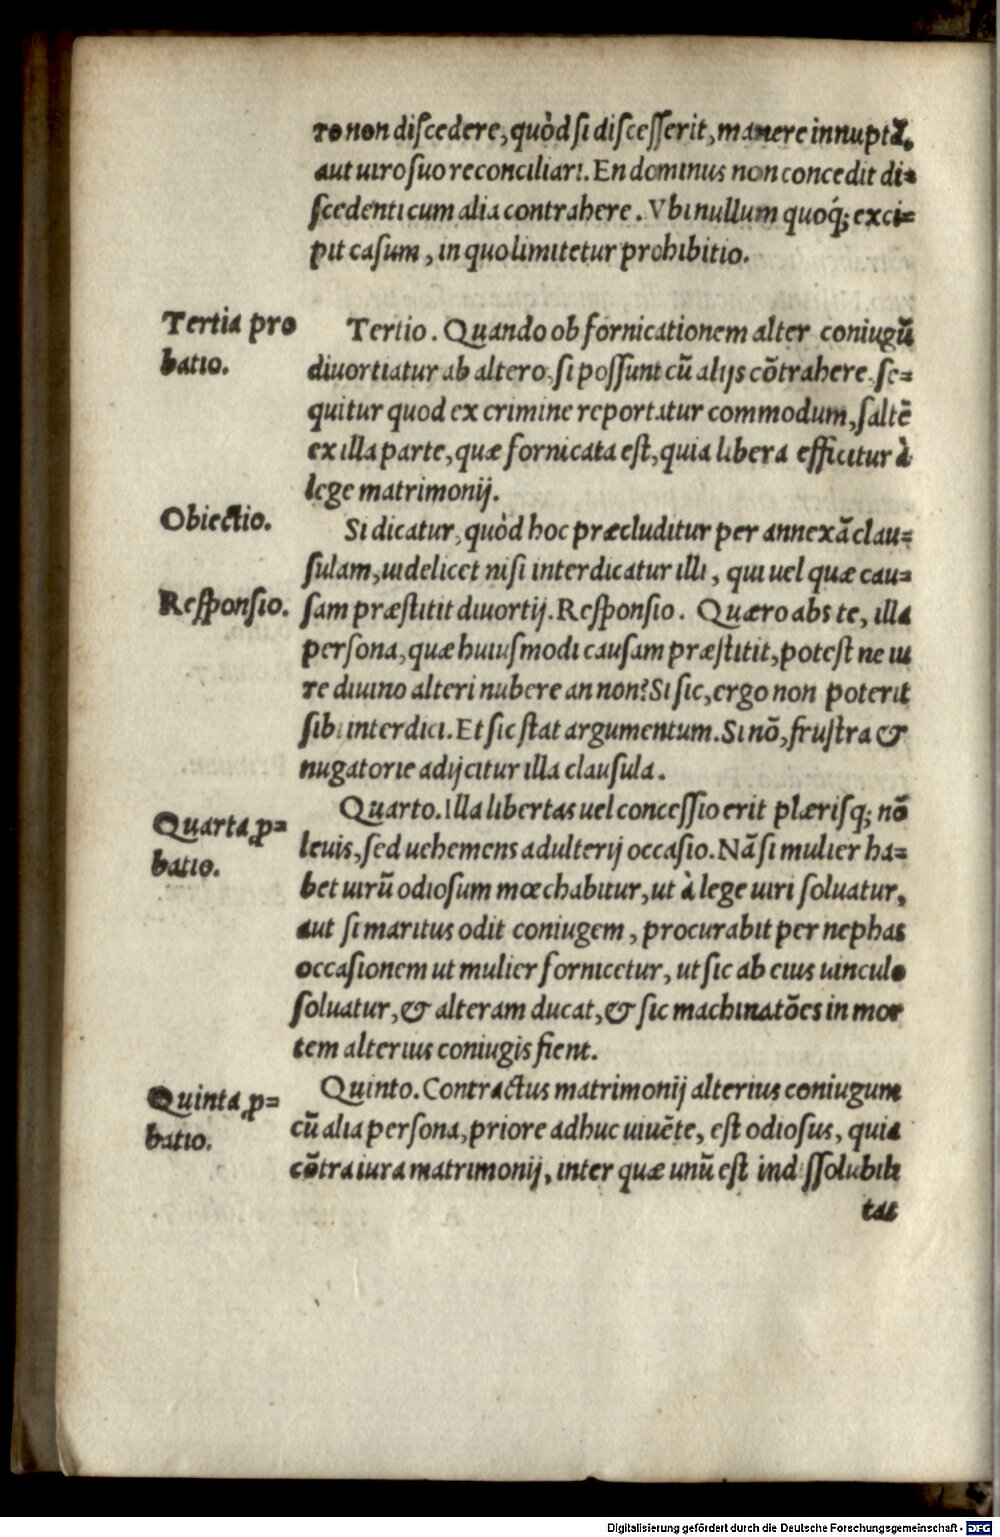 ro non discedere, quòd si discesserit, manere innuptã,
aut uiro suo reconciliari. En dominus non concedit di=
scedenti cum alia contrahere. Vbi nullum quoq́; exci=
pit casum, in quo limitetur prohibitio.
Tertia pro
batio.
Tertio. Quando ob fornicationem alter coniugũ
diuortiatur ab altero, si possunt cũ alijs cõtrahere, se=
quitur quod ex crimine reportatur commodum, saltẽ
ex illa parte, quæ fornicata est, quia libera efficitur à
lege matrimonij.
Obiectio.
Si dicatur, quòd hoc præcluditur per annexã clau=
sulam, uidelicet nisi interdicatur illi, qui uel quæ cau=
Responsio.
sam præstitit diuortij. Responsio. Quæro abs te, illa
persona, quæ huiusmodi causam præstitit, potest ne iu
re diuino alteri nubere an non? Si sic, ergo non poterit
sibi interdici. Et sic stat argumentum. Si nõ, frustra &
nugatorie adijcitur illa clausula.
Quarta ꝓ=
batio.
Quarto. Illa libertas uel concessio erit plærisq; nõ
leuis, sed uehemens adulterij occasio. Nã si mulier ha=
bet uirũ odiosum mœchabitur, ut à lege uiri soluatur,
aut si maritus odit coniugem, procurabit per nephas
occasionem ut mulier fornicetur, ut sic ab eius uinculo
soluatur, & alteram ducat, & sic machinatões in mor
tem alterius coniugis fient.
Quinta ꝓ=
batio.
Quinto. Contractus matrimonij alterius coniugum
cũ alia persona, priore adhuc uiuẽte, est odiosus, quia
cõtra iura matrimonij, inter quæ unũ est indissolubili
tas
Digitalisierung gefördert durch die Deutsche Forschungsgemeinschaft - DFG